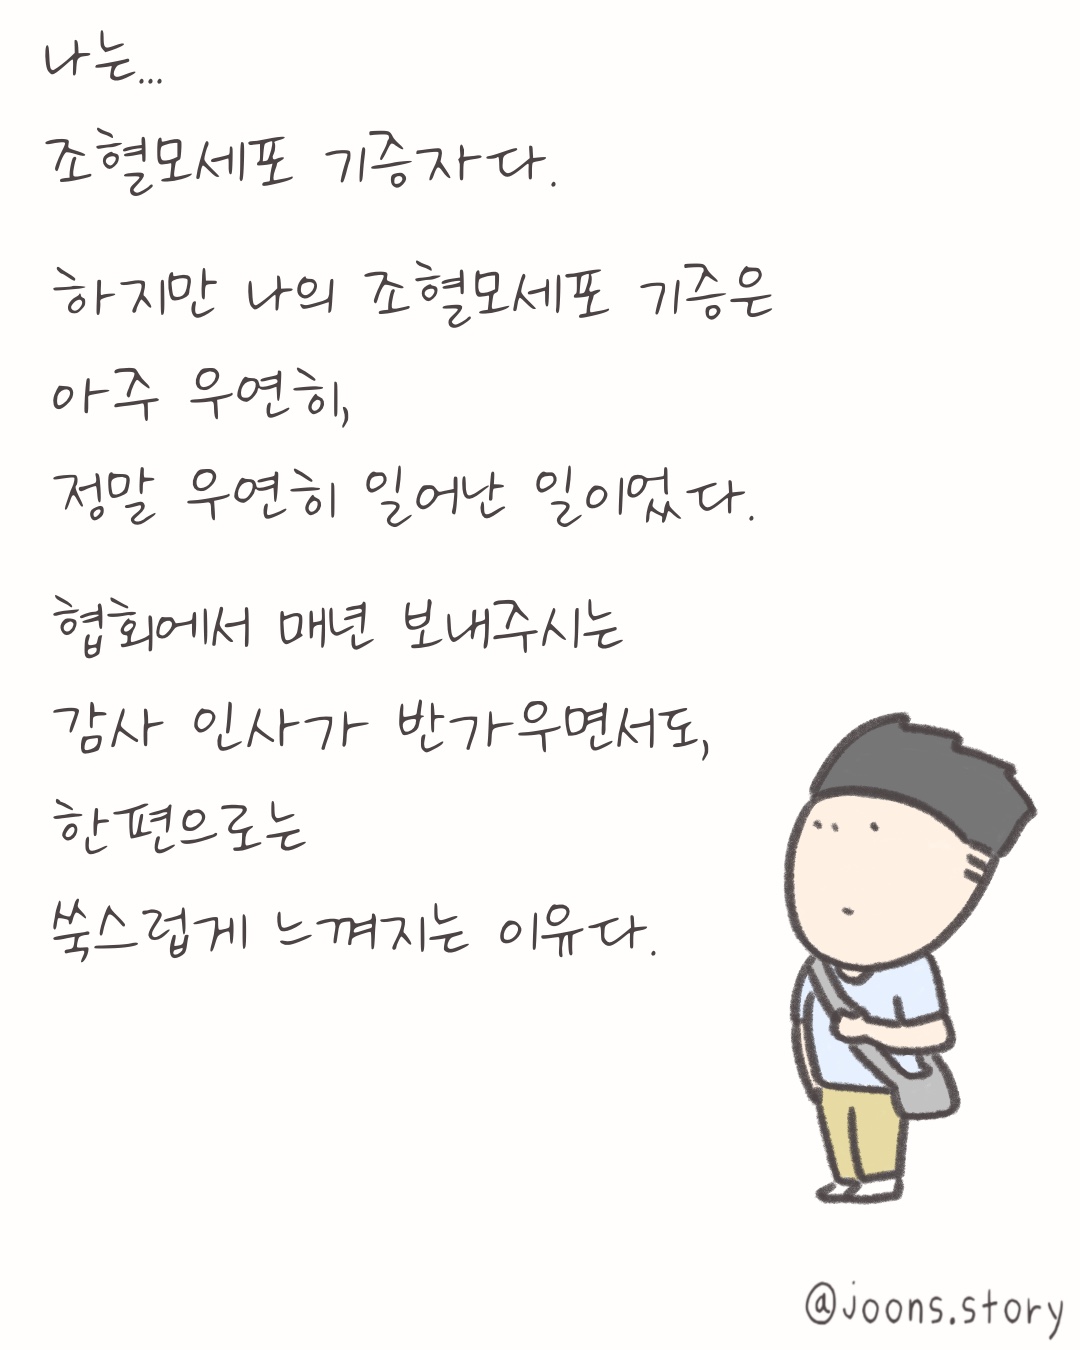 나는...
조혈모세포 기증자다.
하지만 나의 조혈모세포 기증은
아주 우연히,
정말 우연히 일어난 일이었다.
협회에서 매년 보내주시는
감사 인사가 반가우면서도,
한편으로는
쑥스럽게 느껴지는 이유다.
@joons.story